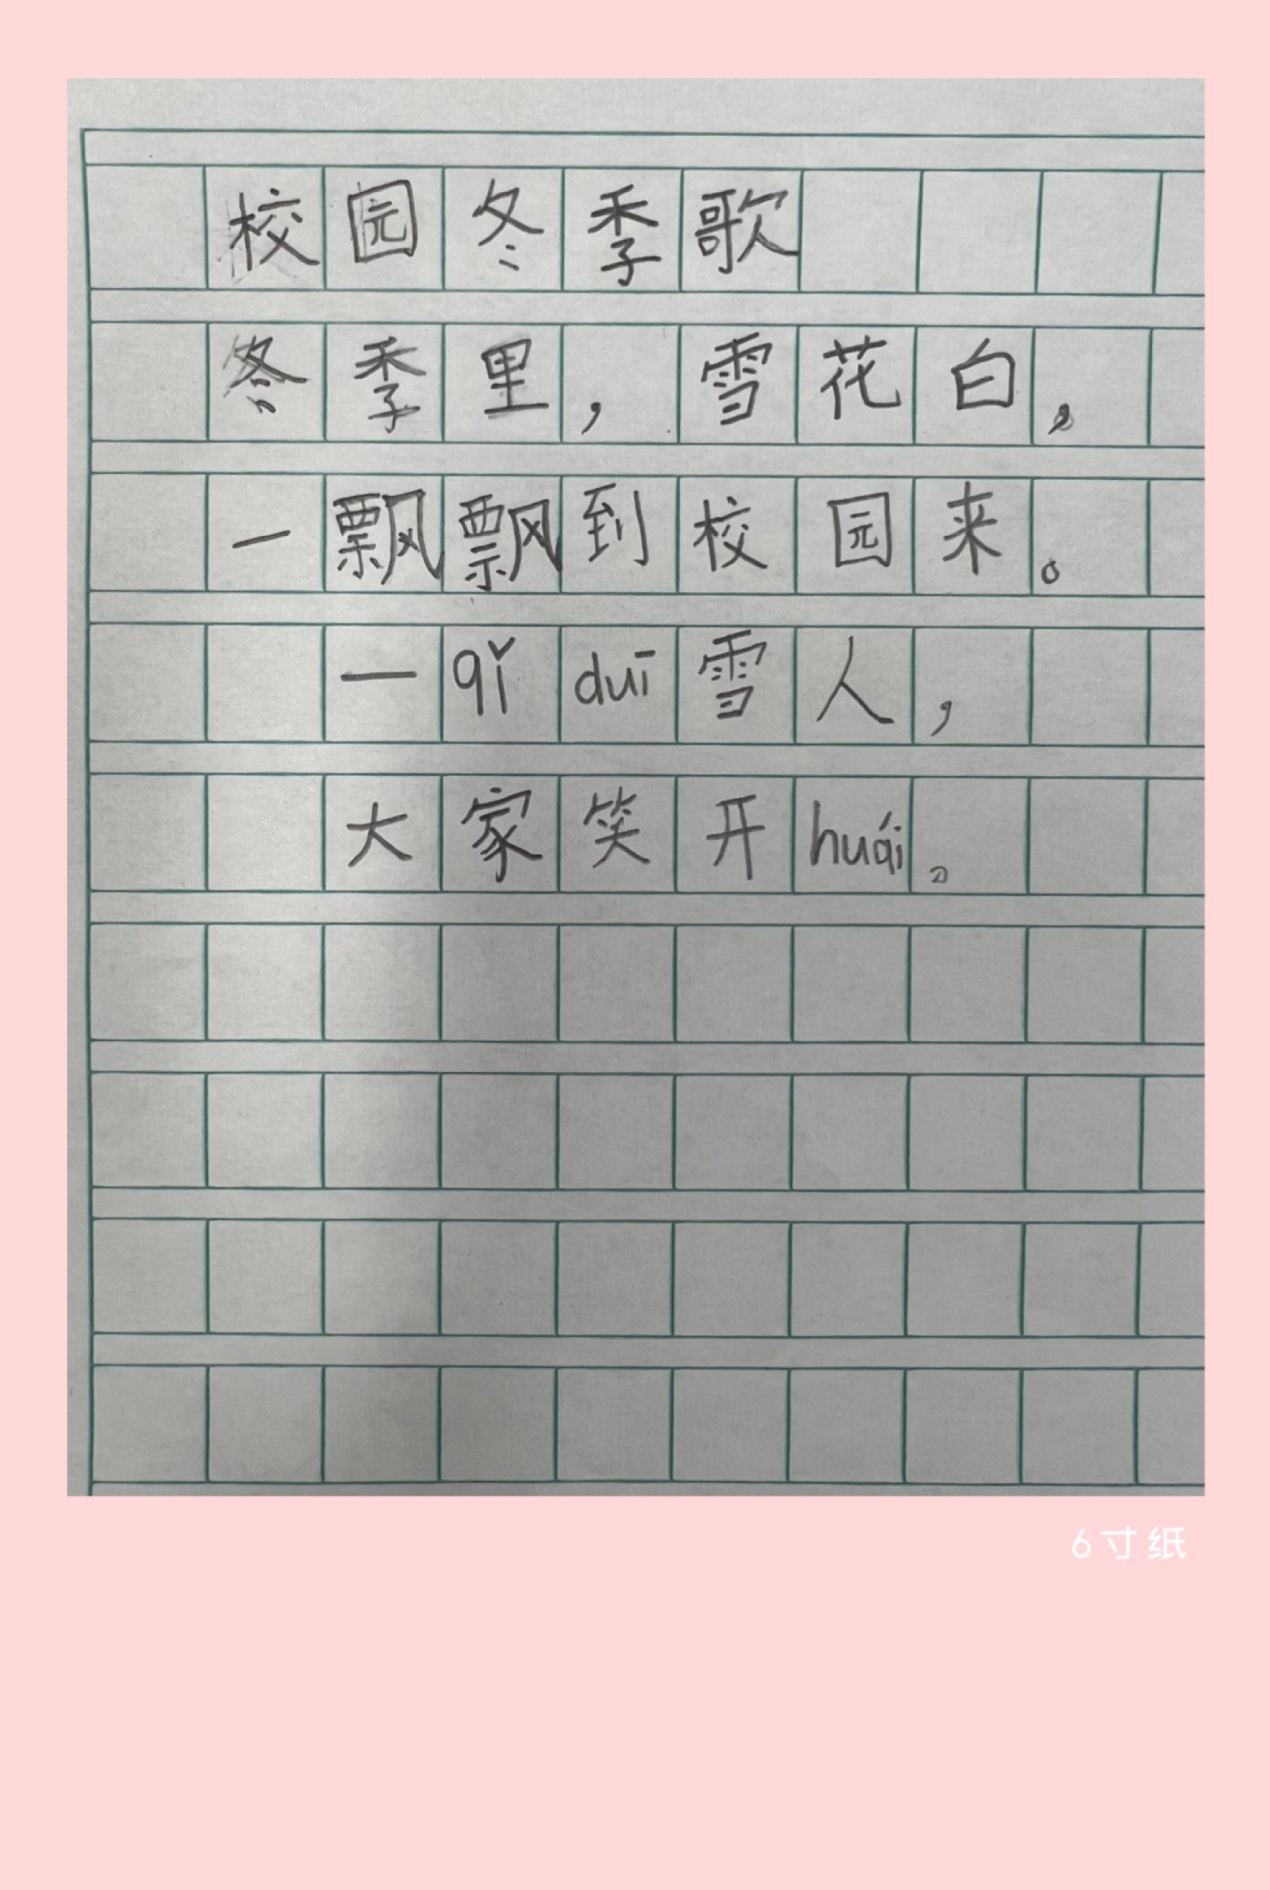 校园冬季歌
冬季里，雪花白，
一飘飘到校园来。
一qǐ duī雪人，
大家笑开huái。
6寸纸